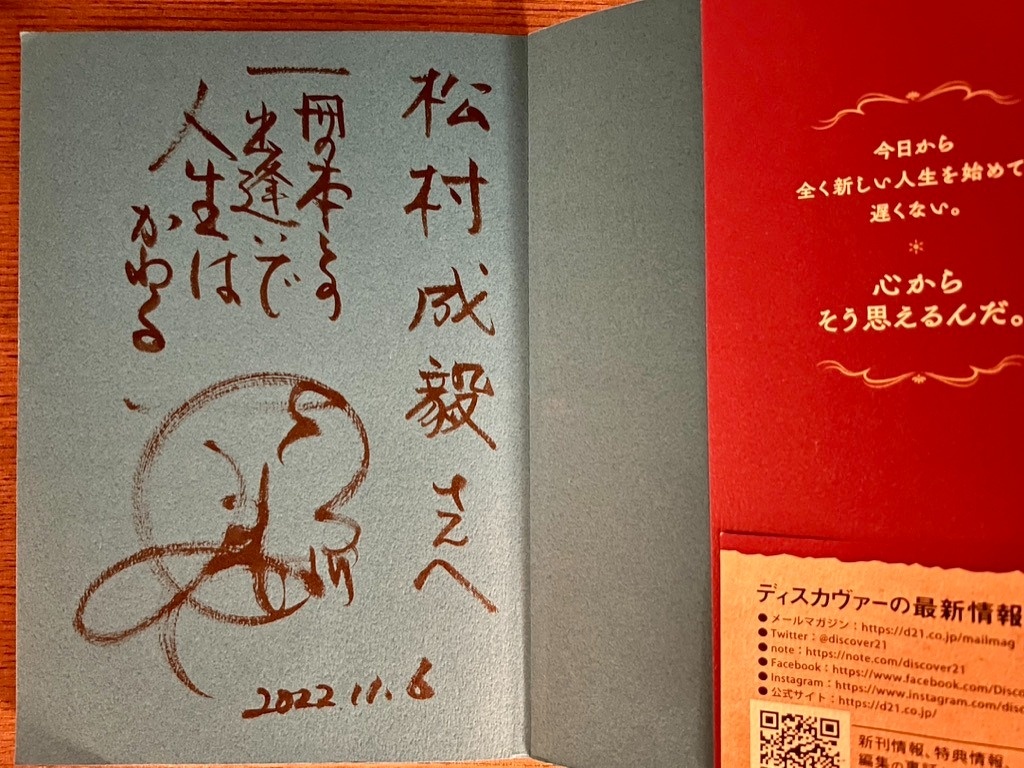 松村成毅さんへ
一冊の本との
出逢いで
人生は
かわる
2022.11.6
今日から
全く新しい人生を始めて
遅くない。
心から
そう思えるんだ。
ディスカヴァーの最新情報
●メールマガジン：https://d21.co.jp/mailmag
●Twitter：@discover21
●note：https://note.com/discover21
●Facebook：https://www.facebook.com/Disco
●Instagram：https://www.instagram.com/disc
●公式サイト：https://d21.co.jp/
新刊情報、特典情報、
編集の裏話